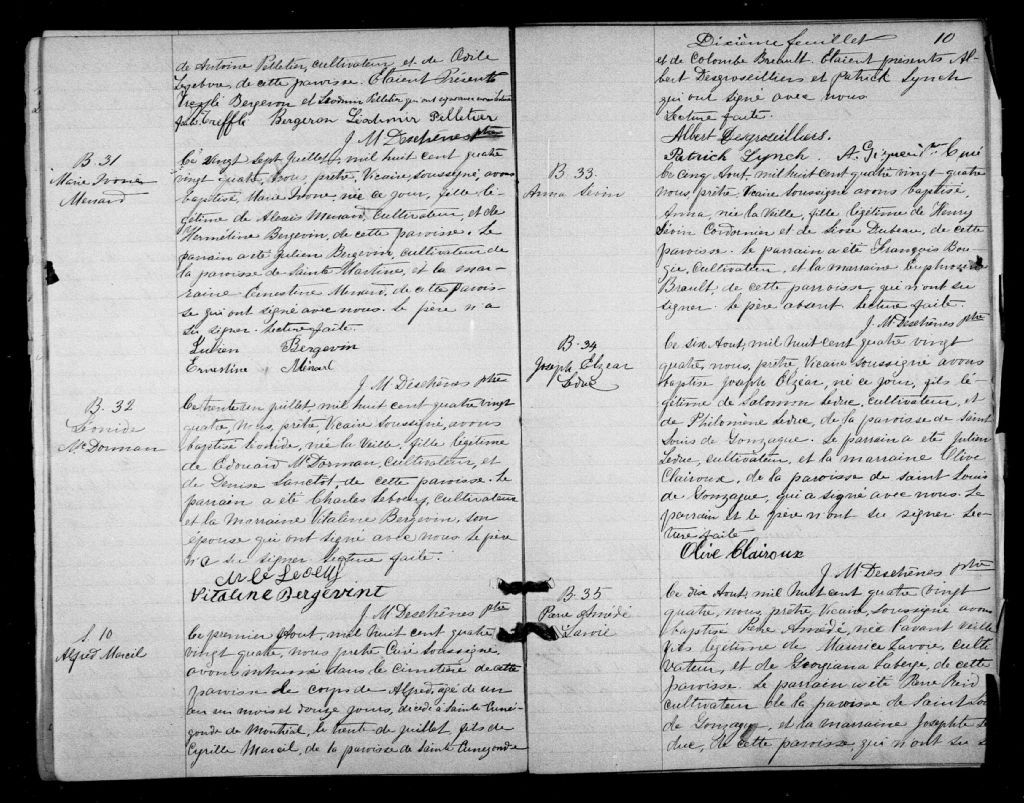 de Antoine Pelletier, cultivateur, et de Odile
Lefebvre, de cette paroisse. Etaient Présents
Trefflé Bergeron et Léodimir Pelletier qui ont
faite. Treffle Bergeron Leodimir Pelletier
J. M Deschênes ptre
B. 31
Marie Ivonne
Menard
Ce vingt sept Juillet, mil huit cent quatre
vingt quatre, nous, prêtre, Vicaire soussigné, avons
baptisé Marie Ivone, née ce jour, fille lé-
gitime de Alexis Menard, cultivateur, et de
Hermeline Bergevin, de cette paroisse. Le
parrain a été Julien Bergevin, cultivateur de
la paroisse de Sainte Martine, et la mar-
raine Ernestine Menard, de cette parois-
se qui ont signé avec nous. Le père n'a
su signer. Lecture faite.
Julien Bergevin
Ernestine Ménard
J. M Deschênes ptre
B. 32
Leonide
McDorman
Ce trente un juillet, mil huit cent quatre vingt
quatre, nous, prêtre, Vicaire soussigné, avons
baptisé Leonide, née la Veille, fille légitime
de Edouard McDorman, cultivateur, et
de Denise Sanctot, de cette paroisse. Le
parrain a été Charles Lebœuf, cultivateur
et la marraine Vitaline Bergevin, son
épouse qui ont signé avec nous. Le père
n'a su signer. Lecture faite.
Vitaline Bergevint
J. M Deschênes ptre
S. 10
Alfred Marcil
Ce premier Août, mil huit cent quatre
vingt quatre, nous prêtre Curé soussigné,
avons inhumé dans le cimetière de cette
paroisse le corps de Alfred, agé de un
an un mois et douze jours, décédé à Sainte Cuné-
gonde de Montréal, le trente de juillet, fils de
Cyrille Marcil, de la paroisse de Sainte Cunégonde
Dixième feuillet 10
et de Colombe Breault. Etaient presents Al-
bert Desgroseilliers et Patrick Lynch
qui ont signé avec nous
Lecture faite.
Albert Desgroseillers.
Patrick Lynch. Curé
B. 33.
Anna Sevin
Ce cinq Aout, mil huit cent quatre vingt quatre
nous, prêtre, Vicaire Soussigné avons baptisé
Anna, née la Veille, fille légitime de Henry
Sevin Cordonnier et de Rose Dubeau, de cette
paroisse. Le parrain a été François Bou-
gie, cultivateur, et la marraine Euphrosine
Brault, de cette parroisse, qui n'ont su
signer. Le père absent. Lecture faite.
J. M. Deschênes ptre
B. 34
Joseph Elzéar
Leduc
Ce six Aout, mil huit cent quatre vingt
quatre, nous, prêtre, Vicaire soussigné avons
baptisé Joseph Elzéar, né ce jour, fils lé-
gitime de Salomon Leduc, cultivateur, et
de Philomène Leduc, de la paroisse de Saint
Louis de Gonzague. Le parrain a été Julien
Leduc, cultivateur, et la marraine Olive
Clairoux, de la paroisse de Saint Louis
de Gonzague, qui a signé avec nous. Le
parrain et le père n'ont su signer. Lec-
ture faite
Olive Clairoux
J. M Deschênes ptre
B. 35
Pierre Amédé
Lavoie
Ce dix Aout, mil huit cent quatre vingt
quatre, nous, prêtre, Vicaire, soussigné avons
baptisé Pierre Amédé, née l'avant veille
fils légitime de Maurice Lavoie, culti
vateur, et de Georgiana Laberge, de cette
paroisse. Le parrain a été Pierre Reid
cultivateur de la paroisse de Saint Lou
de Gonzague, et la marraine Josephte Le
duc, de cette paroisse, qui n'ont su s